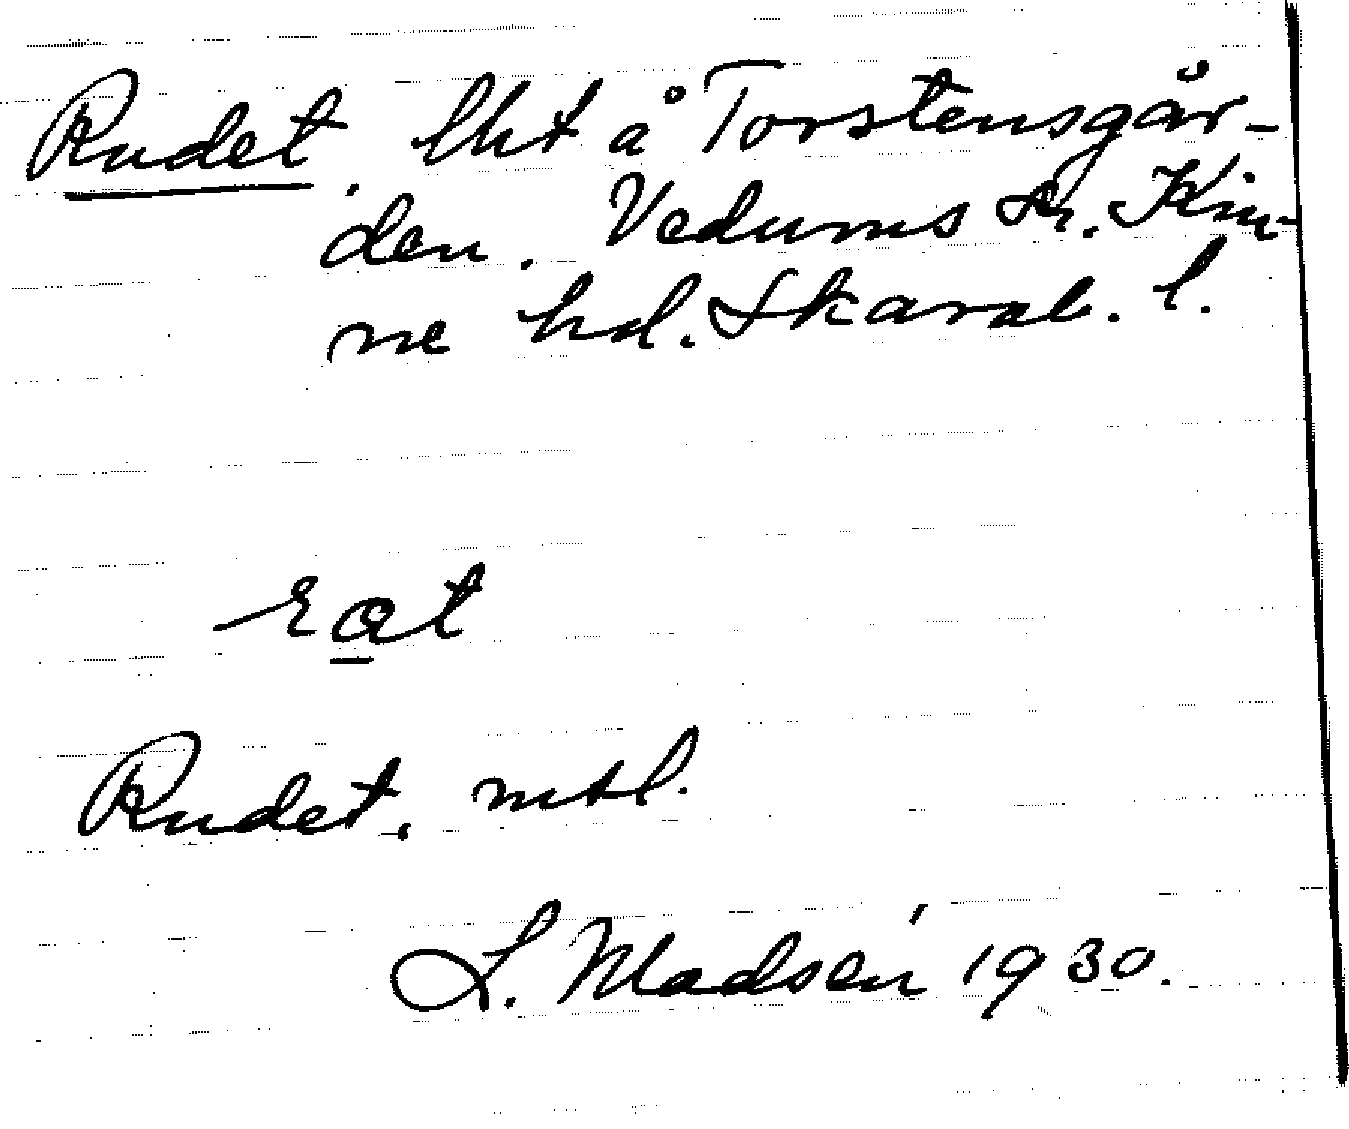 Rudet, lht å Torstensgår-
den. Vedums sn. Kin-
ne hd. Skarab. l.
Rudet, mtl.
L. Madsén 1930.